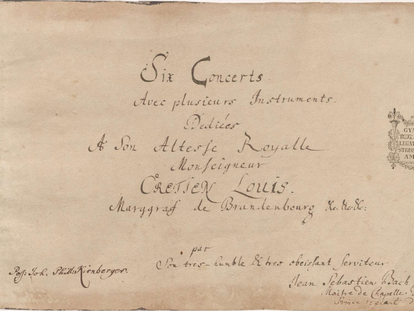 Six Concerts
Avec plusieurs Instruments.
Dediées
A Son Altesse Royalle
Monseigneur
CRETIEN LOUIS.
Marggraf de Brandenbourg &c.&c.&c:
par
Son tres-humble & tres obeissant serviteur
Jean Sebastien Bach
Maitre de Chapelle
Poss: Joh. Kirnberger.